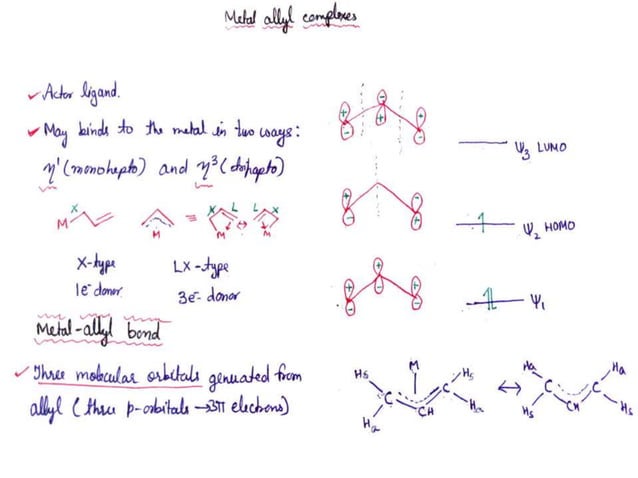 Metal allyl complexes
✓ Actor ligand.
✓ May binds to the metal in two ways:
η¹ (monohepto) and η³ (trihapto)
M X M ≡ X L M ↔ L X M
X-type LX-type
1e⁻ donor 3e⁻ donor
Metal-allyl bond
✓ Three molecular orbitals genuated from
allyl (three p-orbitals → 3π electrons)
+ - - + + -
Ψ3 LUMO
+ - - +
Ψ2 HOMO
+ - + - + -
Ψ1
Hs Ha C M CH C Hs Ha ↔ Ha Hs C CH C Ha Hs